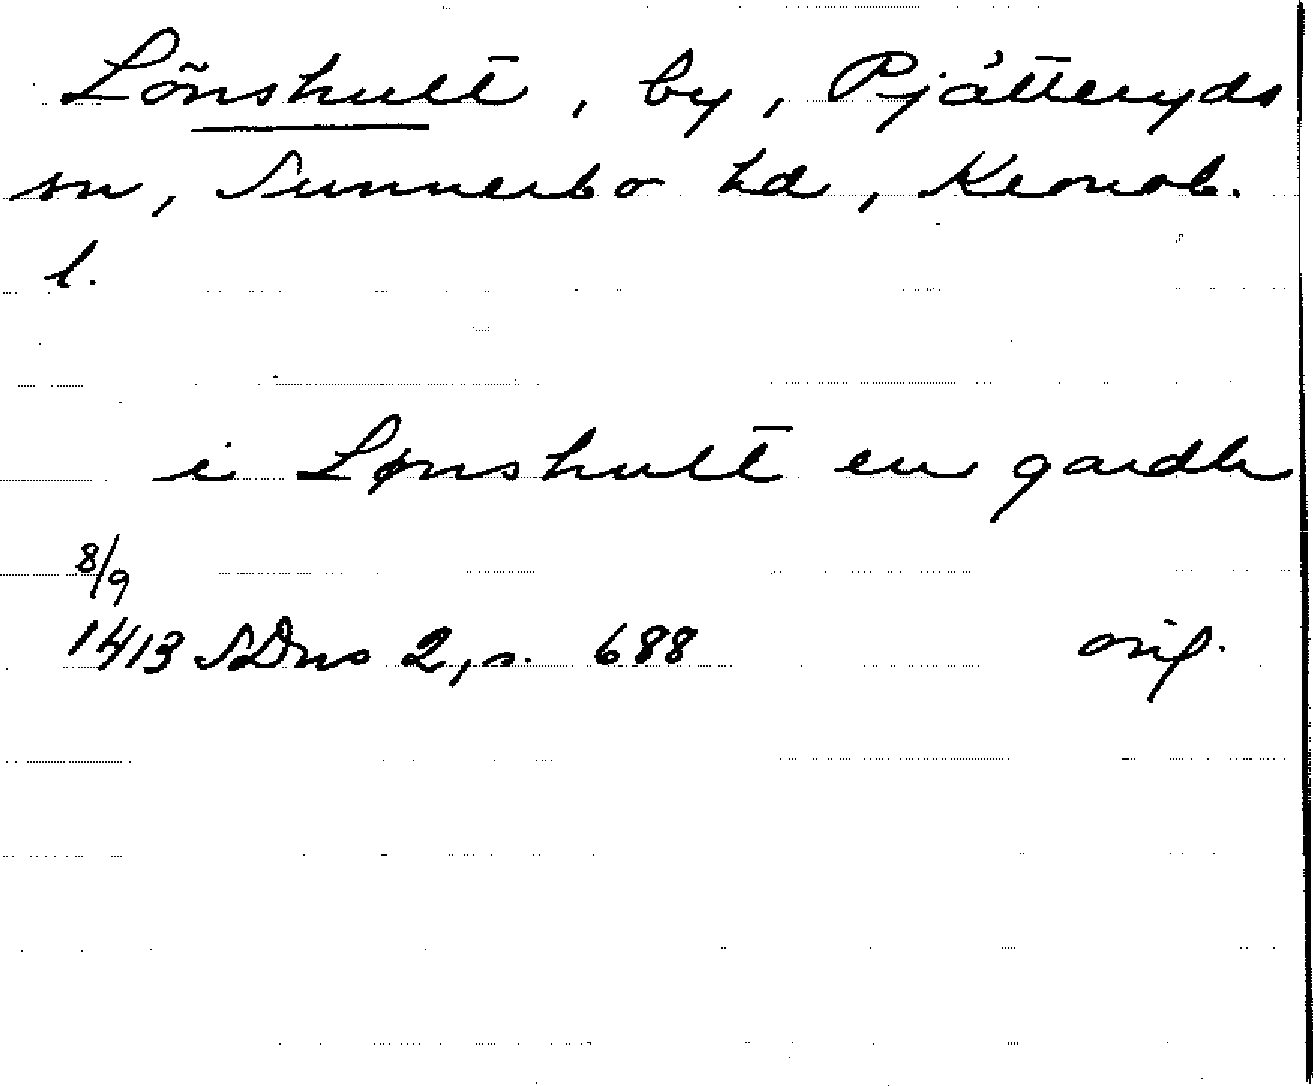 Lönshult, by, Pjätteryds
sn, Sunnerbo hd, Kronob.
l.
i Lønshult en gardh
8/9
1413 SDns 2, s. 688 orig.